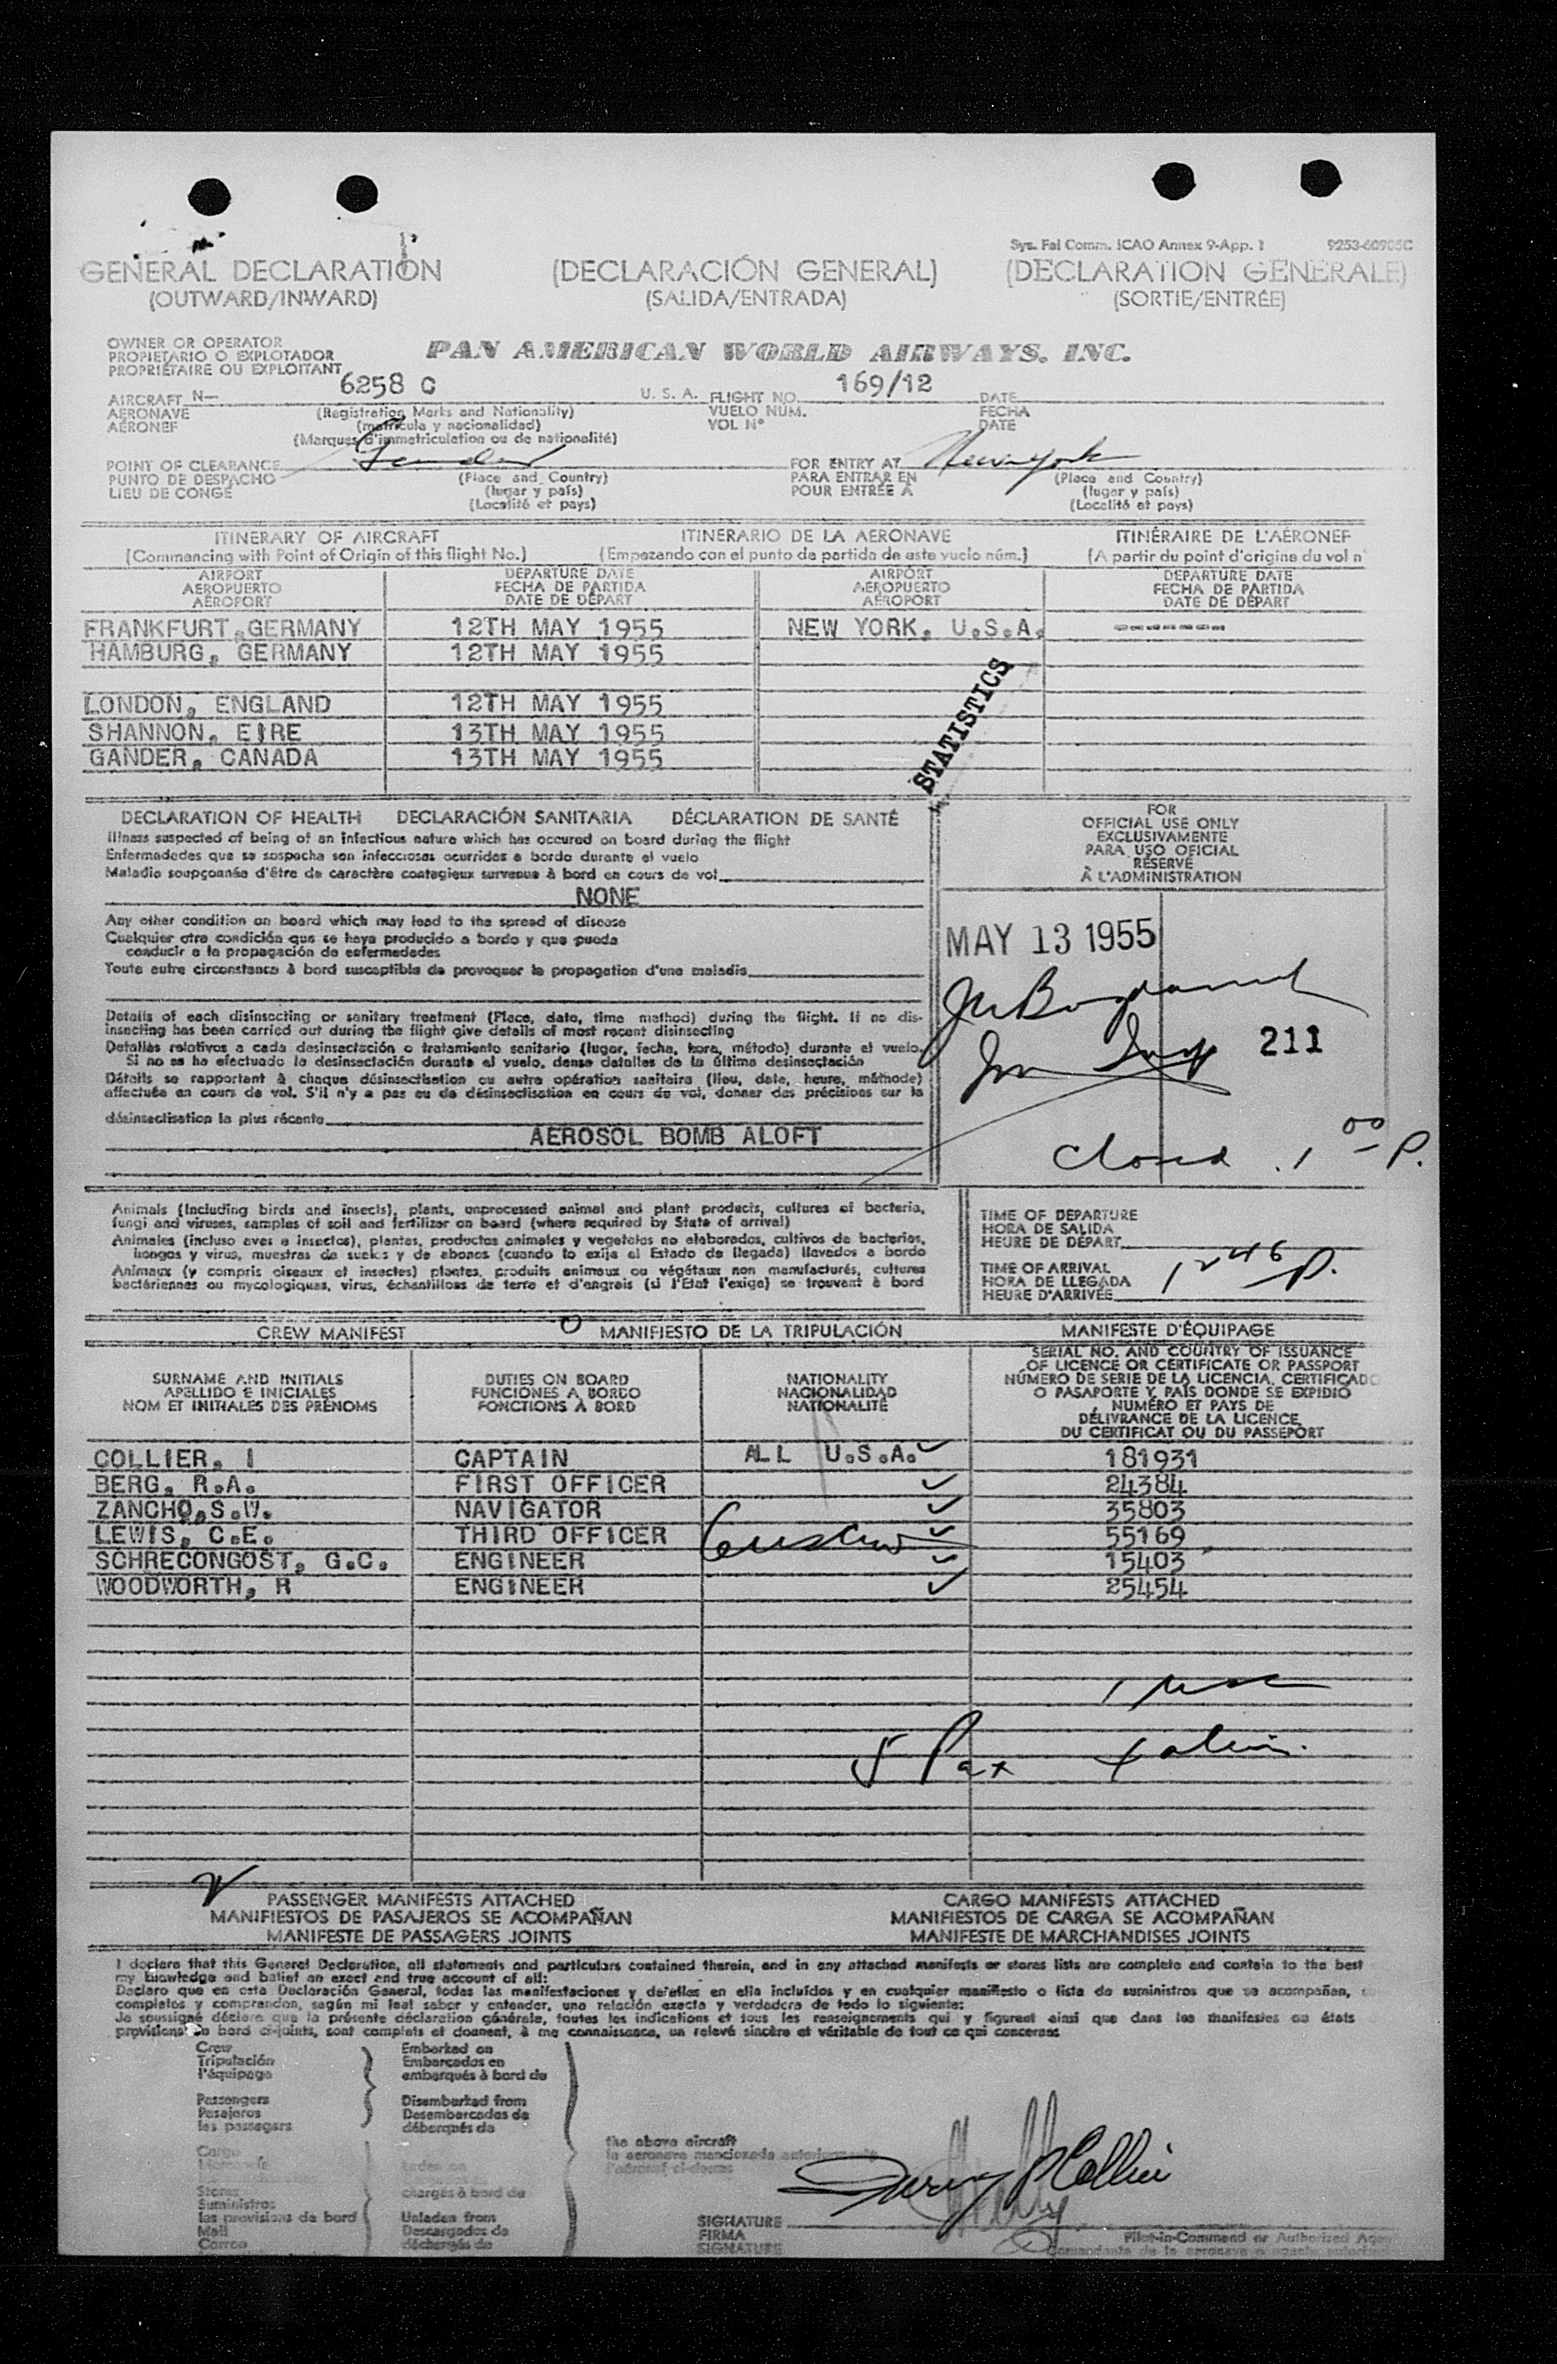 Sys. Fal Comm. ICAO Annex 9-App. 1 9253-60905C
GENERAL DECLARATION (DECLARACIÓN GENERAL) (DECLARATION GENERALE)
(OUTWARD/INWARD) (SALIDA/ENTRADA) (SORTIE/ENTRÉE)
OWNER OR OPERATOR
PROPIETARIO O EXPLOTADOR
PROPRIÉTAIRE OU EXPLOITANT
PAN AMERICAN WORLD AIRWAYS, INC.
AIRCRAFT N— 6258 C U. S. A. FLIGHT NO. 169/12 DATE
AERONAVE (Registration Marks and Nationality) VUELO NUM. FECHA
AÉRONEF (matrícula y nacionalidad) VOL Nº DATE
(Marques d'immatriculation ou de nationalité)
POINT OF CLEARANCE Gander FOR ENTRY AT New York
PUNTO DE DESPACHO (Place and Country) PARA ENTRAR EN (Place and Country)
LIEU DE CONGÉ (lugar y país) POUR ENTRÉE À (lugar y país)
(Localité et pays) (Localité et pays)
ITINERARY OF AIRCRAFT ITINERARIO DE LA AERONAVE ITINÉRAIRE DE L'AÉRONEF
(Commencing with Point of Origin of this flight No.) (Empezando con el punto de partida de este vuelo núm.) (A partir du point d'origine du vol n'
AIRPORT DEPARTURE DATE AIRPORT DEPARTURE DATE
AEROPUERTO FECHA DE PARTIDA AEROPUERTO FECHA DE PARTIDA
AÉROPORT DATE DE DÉPART AÉROPORT DATE DE DÉPART
FRANKFURT,GERMANY 12TH MAY 1955 NEW YORK, U.S.A. -------
HAMBURG, GERMANY 12TH MAY 1955
LONDON, ENGLAND 12TH MAY 1955
SHANNON, EIRE 13TH MAY 1955
GANDER, CANADA 13TH MAY 1955
STATISTICS
DECLARATION OF HEALTH DECLARACIÓN SANITARIA DÉCLARATION DE SANTÉ
Illness suspected of being of an infectious nature which has occured on board during the flight
Enfermedades que se sospecha son infecciosas ocurridas a bordo durante el vuelo
Maladie soupçonnée d'être de caractère contagieux survenue à bord en cours de vol
NONE
Any other condition on board which may lead to the spread of disease
Cualquier otra condición que se haya producido a bordo y que pueda
conducir a la propagación de enfermedades
Toute autre circonstance à bord susceptible de provoquer la propagation d'une maladie
Details of each disinsecting or sanitary treatment (Place, date, time method) during the flight. If no dis-
insecting has been carried out during the flight give details of most recent disinsecting
Detalles relativos a cada desinsectación o tratamiento sanitario (lugar, fecha, hora, método) durante el vuelo.
Si no se ha efectuado la desinsectación durante el vuelo, dense detalles de la última desinsectación
Détails se rapportant à chaque désinsectisation ou autre opération sanitaire (lieu, date, heure, méthode)
effectuée en cours de vol. S'il n'y a pas eu de désinsectisation en cours de vol, donner des précisions sur la
désinsectisation la plus récente
AEROSOL BOMB ALOFT
FOR
OFFICIAL USE ONLY
EXCLUSIVAMENTE
PARA USO OFICIAL
RÉSERVÉ
À L'ADMINISTRATION
MAY 13 1955
211
Closed 1 00 P.
Animals (Including birds and insects), plants, unprocessed animal and plant products, cultures of bacteria,
fungi and viruses, samples of soil and fertilizer on board (where required by State of arrival)
Animales (incluso aves e insectos), plantas, productos animales y vegetales no elaborados, cultivos de bacterias,
hongos y virus, muestras de suelos y de abonos (cuando lo exija el Estado de llegada) llevados a bordo
Animaux (y compris oiseaux et insectes) plantes, produits animaux ou végétaux non manufacturés, cultures
bactériennes ou mycologiques, virus, échantillons de terre et d'engrais (si l'Etat l'exige) se trouvant à bord
TIME OF DEPARTURE
HORA DE SALIDA
HEURE DE DÉPART
TIME OF ARRIVAL
HORA DE LLEGADA
HEURE D'ARRIVÉE
12 46 P.
CREW MANIFEST MANIFIESTO DE LA TRIPULACIÓN MANIFESTE D'ÉQUIPAGE
SURNAME AND INITIALS
APELLIDO E INICIALES
NOM ET INITIALES DES PRÉNOMS
DUTIES ON BOARD
FUNCIONES A BORDO
FONCTIONS À BORD
NATIONALITY
NACIONALIDAD
NATIONALITÉ
SERIAL NO. AND COUNTRY OF ISSUANCE
OF LICENCE OR CERTIFICATE OR PASSPORT
NÚMERO DE SERIE DE LA LICENCIA, CERTIFICADO
O PASAPORTE Y PAÍS DONDE SE EXPIDIÓ
NUMÉRO ET PAYS DE
DÉLIVRANCE DE LA LICENCE,
DU CERTIFICAT OU DU PASSEPORT
COLLIER, I CAPTAIN ALL U.S.A. 181931
BERG, R.A. FIRST OFFICER 24384
ZANCHO,S.W. NAVIGATOR 35803
LEWIS, C.E. THIRD OFFICER 55169
SCHRECONGOST, G.C. ENGINEER 15403
WOODWORTH, R ENGINEER 25454
5 Pax
PASSENGER MANIFESTS ATTACHED CARGO MANIFESTS ATTACHED
MANIFIESTOS DE PASAJEROS SE ACOMPAÑAN MANIFIESTOS DE CARGA SE ACOMPAÑAN
MANIFESTE DE PASSAGERS JOINTS MANIFESTE DE MARCHANDISES JOINTS
I declare that this General Declaration, all statements and particulars contained therein, and in any attached manifests or stores lists are complete and contain to the best
my knowledge and belief an exact and true account of all:
Declaro que en esta Declaración General, todas las manifestaciones y detalles en ella incluídos y en cualquier manifiesto o lista de suministros que se acompañan,
completos y comprenden, según mi leal saber y entender, una relación exacta y verdadera de todo lo siguiente:
Je soussigné déclare que la présente déclaration générale, toutes les indications et tous les renseignements qui y figurent ainsi que dans les manifestes ou états
provisions de bord ci-joints, sont complets et donnent, à ma connaissance, un relevé sincère et véritable de tout ce qui concernes
Crew
Tripulación
l'équipage
Passengers
Pasajeros
les passagers
Cargo
Stores
Suministros
les provisions de bord
Mail
Correo
Embarked on
Embarcados en
embarqués à bord de
Disembarked from
Desembarcados de
débarqués de
Laden on
chargés à bord de
Unladen from
Descargados de
déchargés de
the above aircraft
la aeronave mencionada anteriormente
l'aéronef ci-dessus
SIGNATURE
FIRMA
SIGNATURE
Pilot-in-Command or Authorized Agent